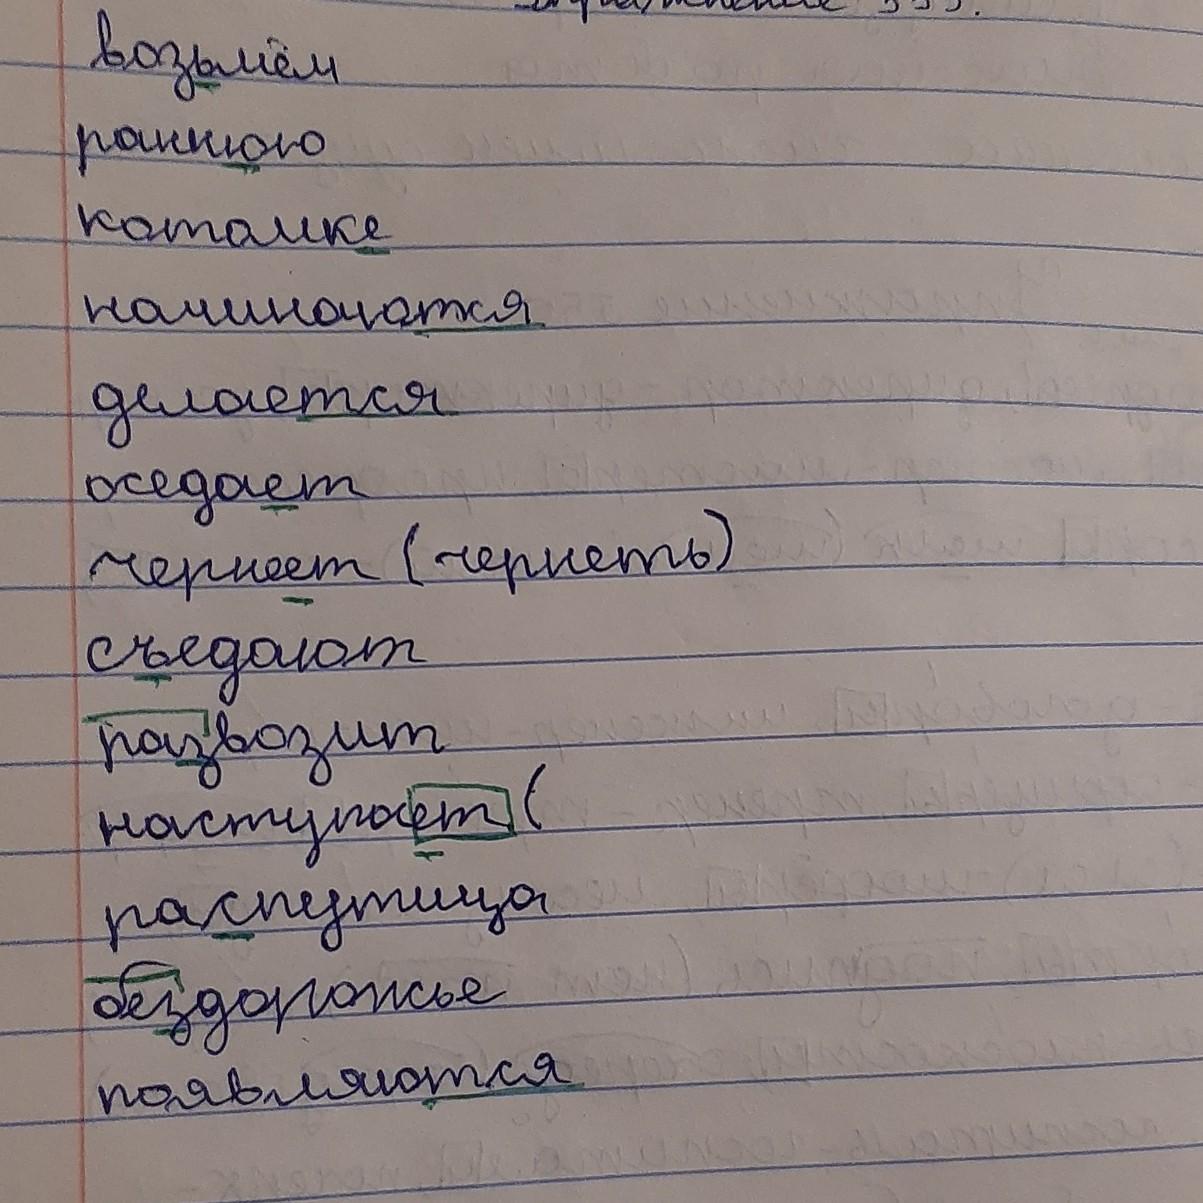 возьмём
раннюю
котомке
начинаются
делается
оседает
чернеет (чернеть)
съедают
развозит
наступает (
распутица
бездорожье
появляются